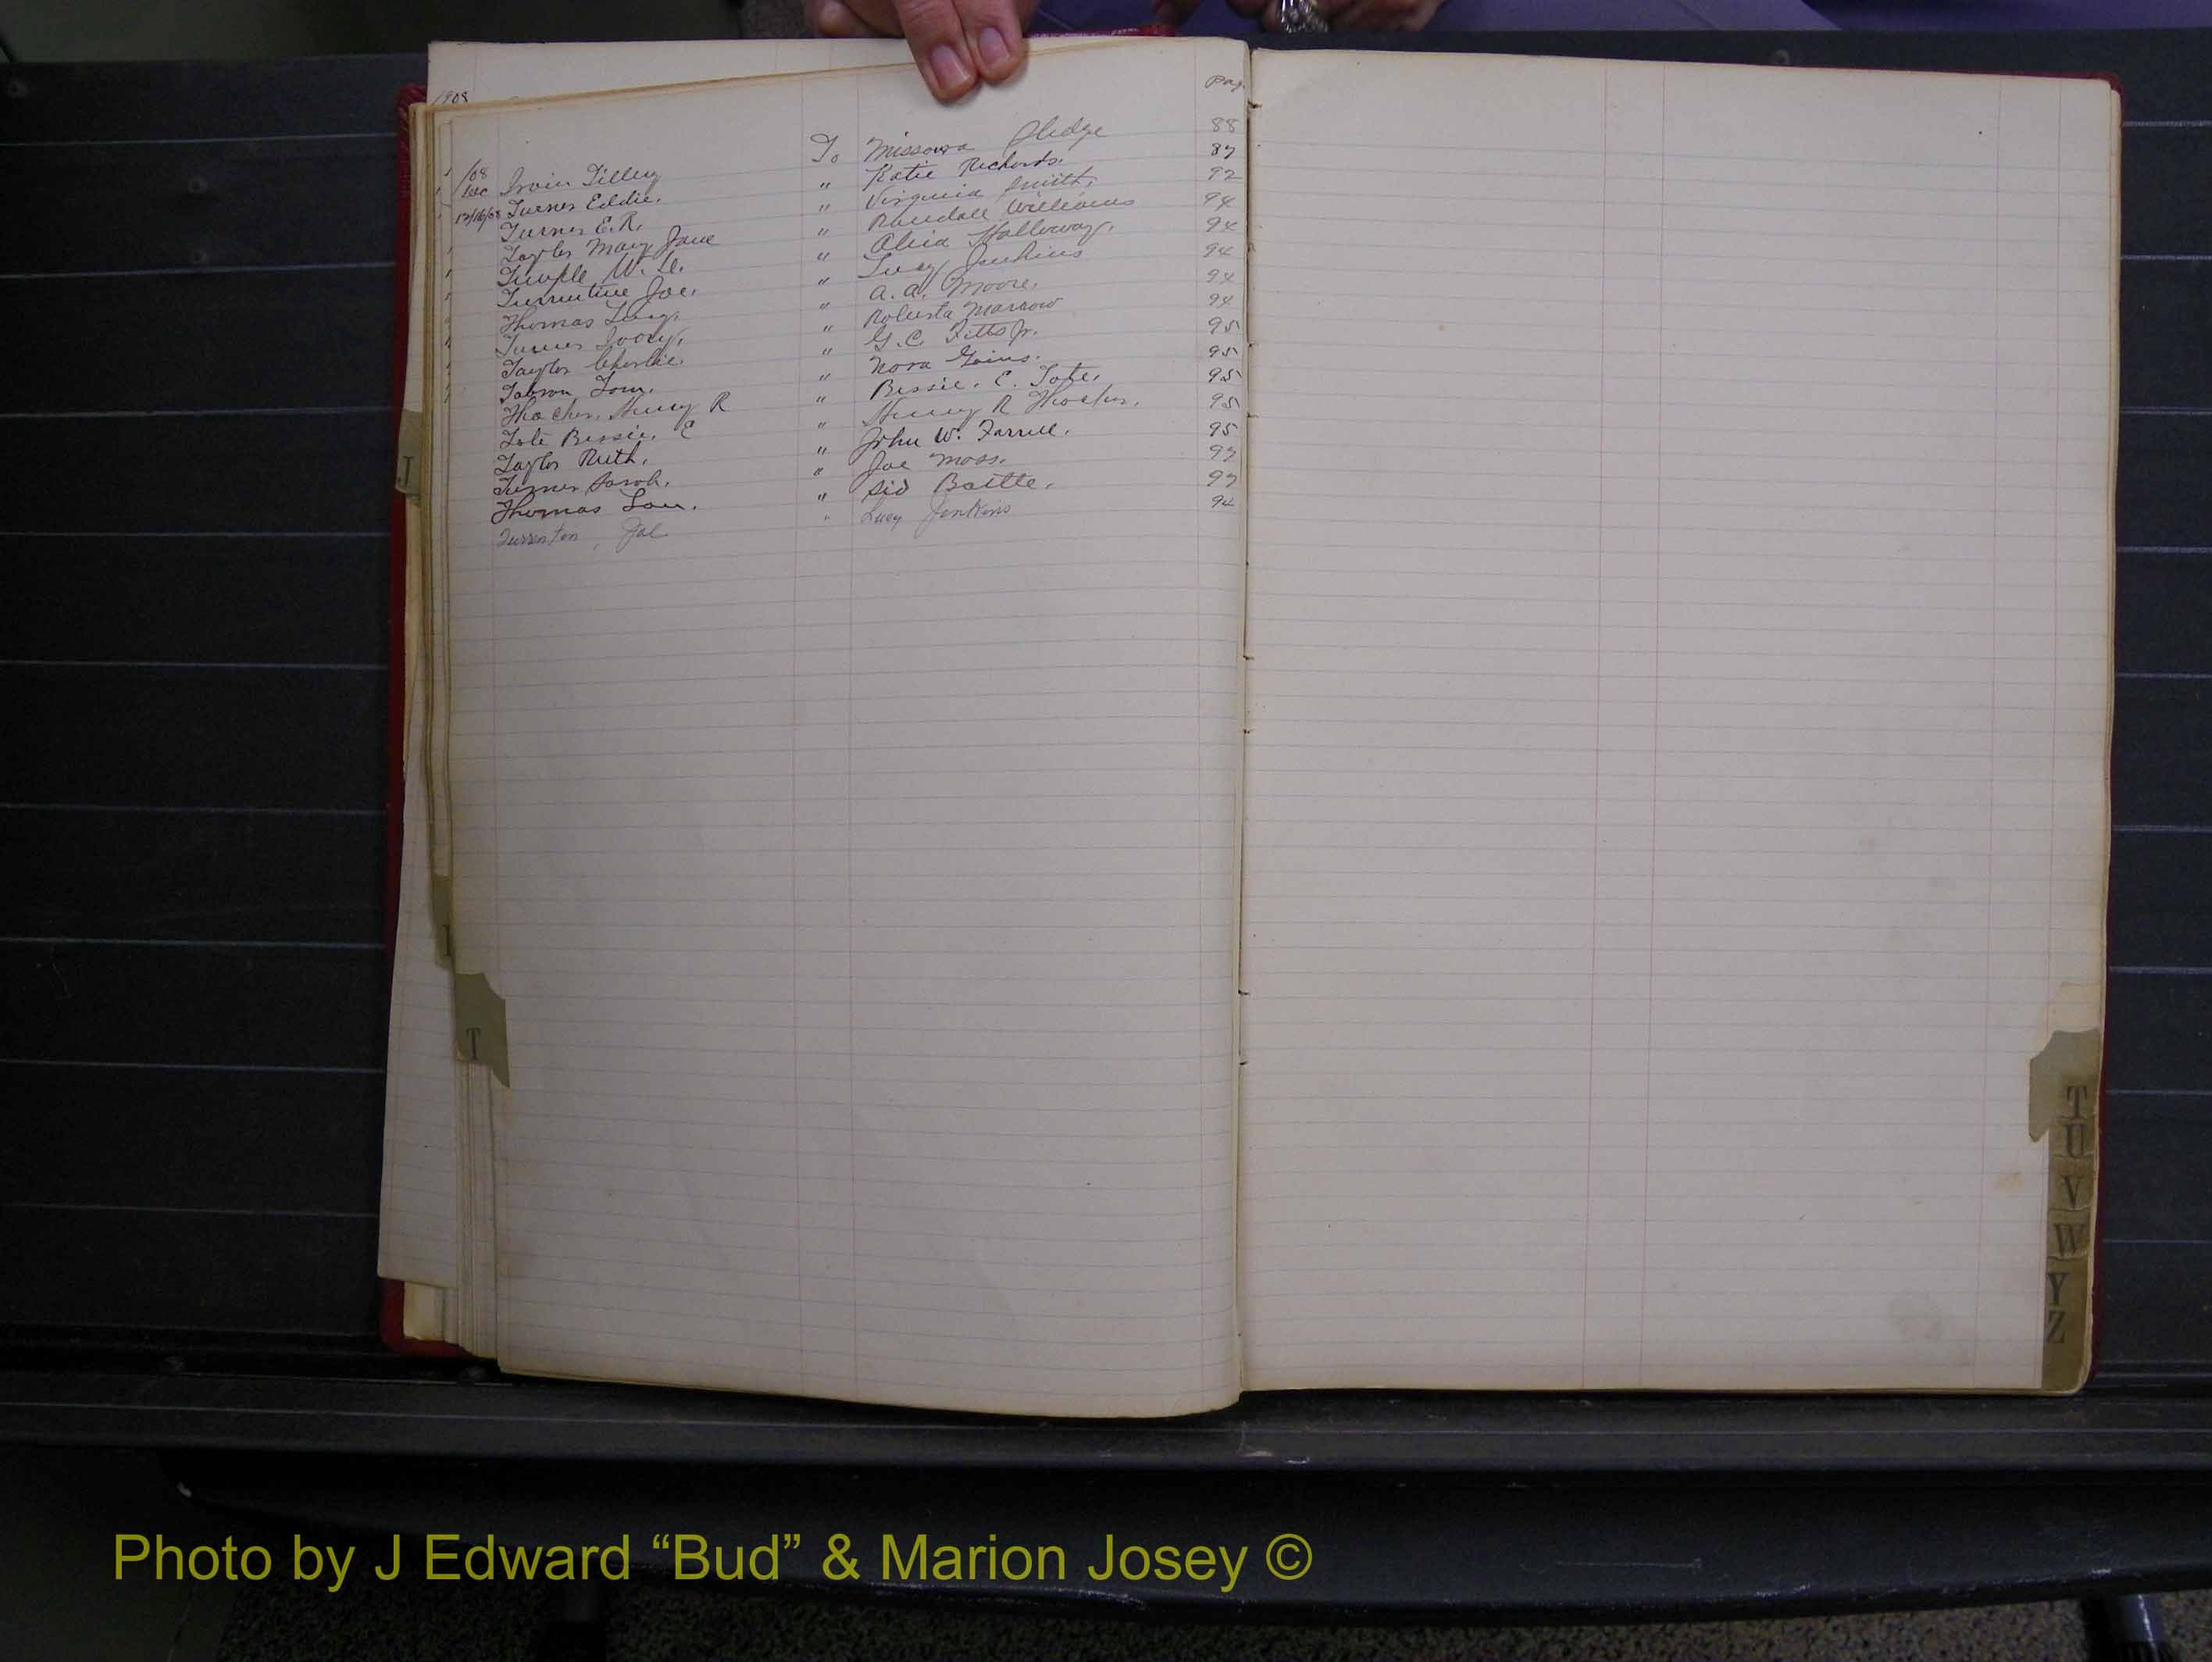 1908
Pag.
/08 Irvin Tilley To Missoura Oledge 88
Dec Turner Eddie. " Katie Richards. 87
12/16/08 Turner E.R. " Virginia Smith. 92
Taylor Mary Jane " Randall Williams 94
Temple W. D. " Alice Holloway. 94
Turrentine Joe. " Lucy Jenkins 94
Thomas " A. A. Moore. 94
Turner " Roberta Marrow 94
Taylor Charlie. " G. C. Fitts Jr. 95
Tom. " Nora Goins. 95
Thacher, Henry R " Bessie. E. Tate. 95
Tate Bessie. E " Henry R Thacher. 95
Taylor Ruth. " John W. Farrell. 95
Turner Sarah. " Joe Moss. 97
Thomas Lou. " Sid Battle. 97
Turrenton, Joe " Lucy Jenkins 94
J
T
T
U
V
W
Y
Z
Photo by J Edward “Bud” & Marion Josey ©